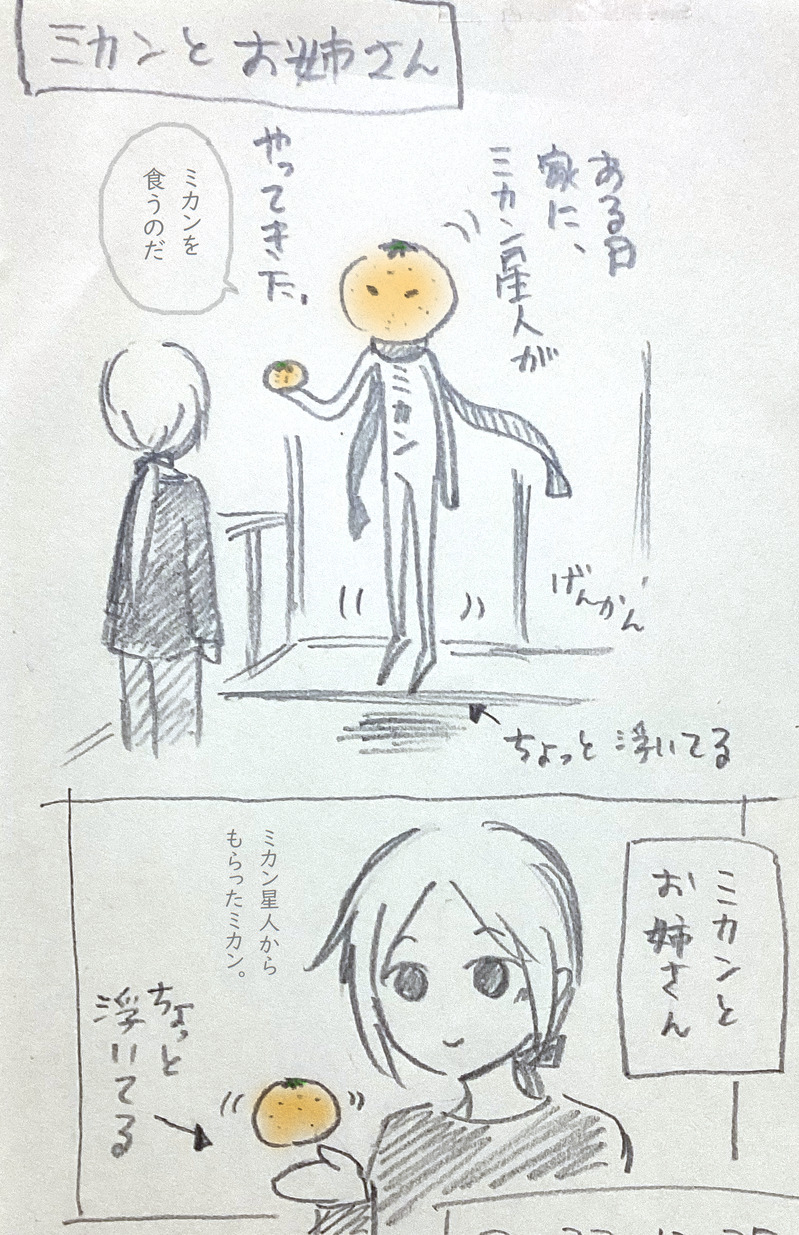 ミカンとお姉さん
ある日
家に、
ミカン星人が
やってきた。
ミカンを
食うのだ
ミカン
げんかん
ちょっと浮いてる
ミカンと
お姉さん
ミカン星人から
もらったミカン。
ちょっと
浮いてる